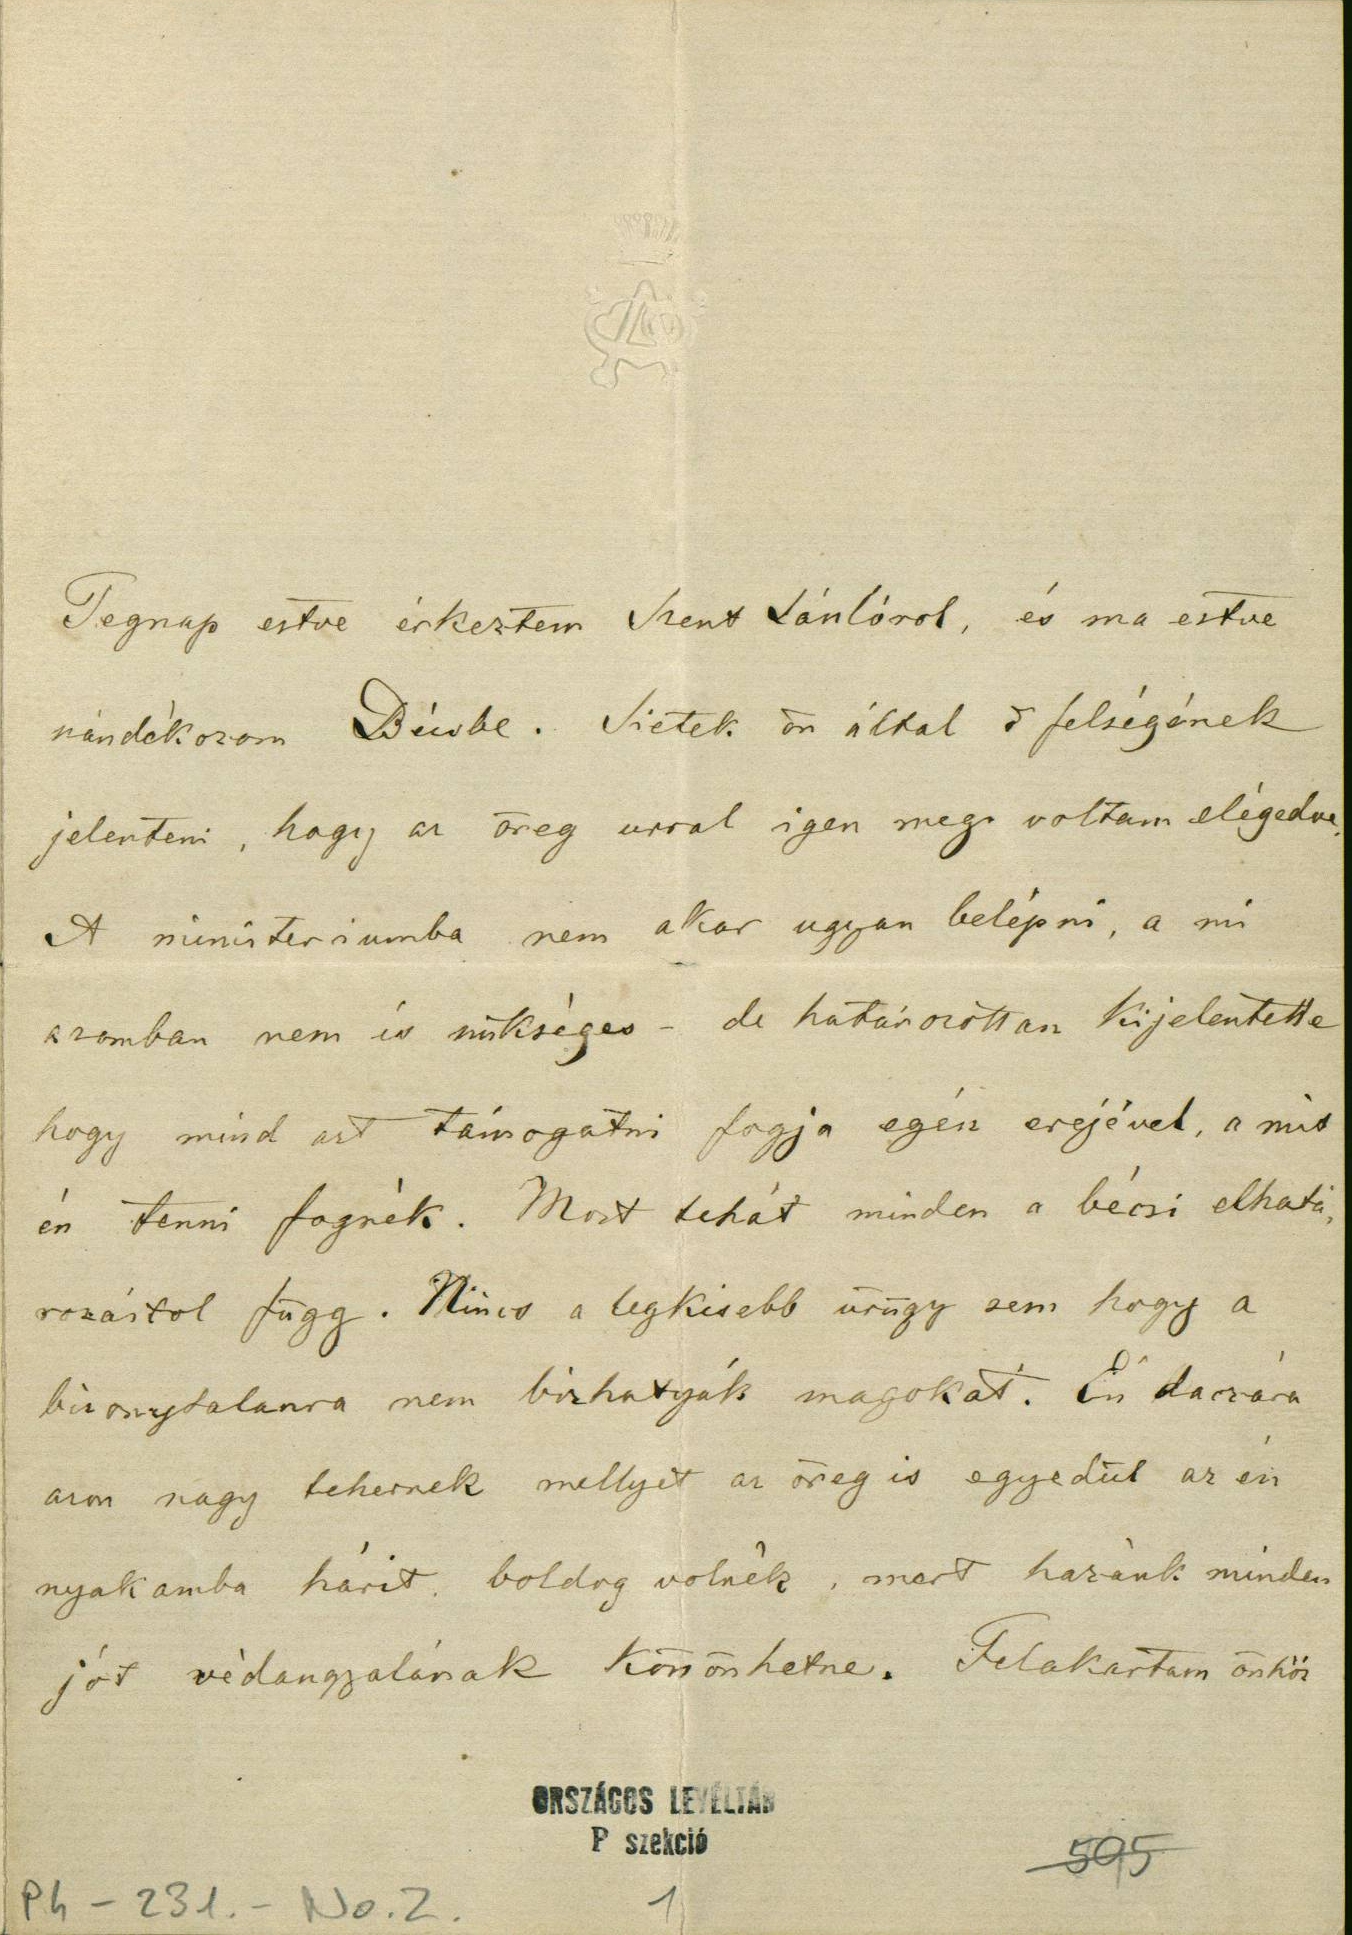 Tegnap estve érkeztem Szent Lászlóról, és ma estve
szándékozom Bécsbe. Sietek ön által ő felségének
jelenteni, hogy az öreg urral igen meg voltam elégedve.
A ministeriumba nem akar ugyan belépni, a mi
azomban nem is szükséges – de határozottan kijelentette
hogy mind azt támogatni fogja egész erejével, a mit
én tenni fognék. Most tehát minden a bécsi elhatá,
rozástol függ. Nincs a legkisebb ürügy sem hogy a
bizonytalanra nem bizhatyák magokat. Én daczára
azon nagy tehernek mellyet az öreg is egyedül az én
nyakamba hárit, boldog volnék, mert hazánk minden
jót védangyalának köszönhetne. Felakartam önhöz
ORSZÁGOS LEVÉLTÁR
P szekció
595
Ph – 231. – No. 2.
1